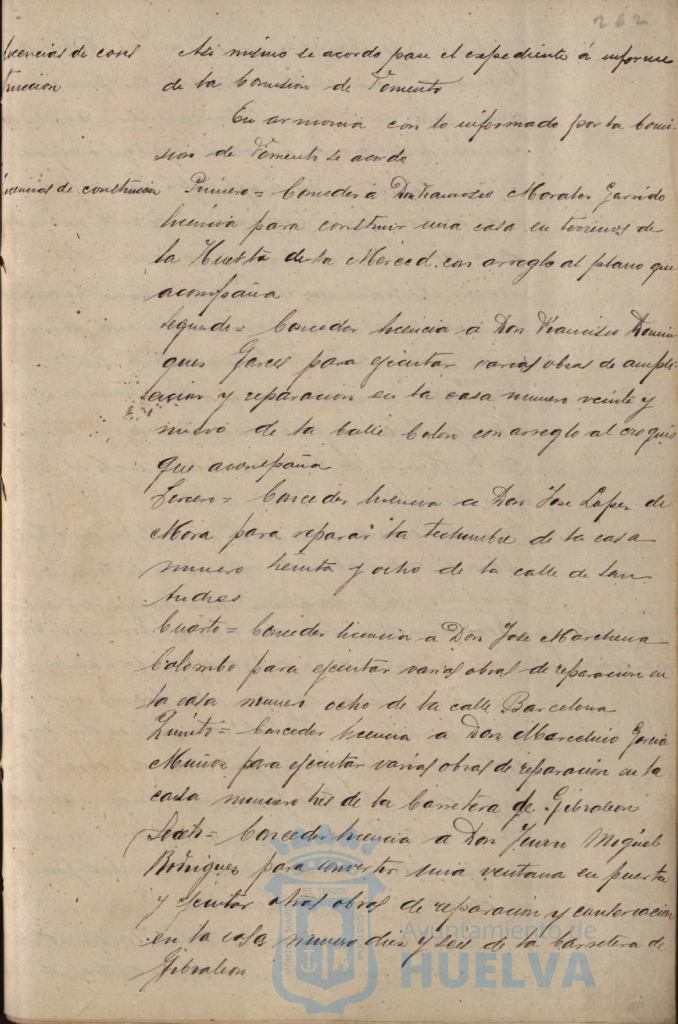 262
licencias de cons
truccion
Asi mismo se acordo pase el expediente á informe
de la Comision de Fomento
En armonia con lo informado por la Comi-
sion de Fomento se acordo
licencias de construccion
Primero = Conceder á Don Francisco Morales Garrido
licencia para construir una casa en terrenos de
la Huerta de la Merced con arreglo al plano que
acompaña
Segundo = Conceder licencia á Don Francisco Domin
guez Garces para ejecutar varias obras de ampli-
acion y reparacion en la casa numero veinte y
nueve de la Calle Colon con arreglo al croquis
que acompaña
Tercero = Conceder licencia a Don Jose Lopez de
Mora para reparar la techumbre de la casa
numero treinta y ocho de la calle de San
Andres
Cuarto = Conceder licencia a Don Jose Marchena
Colombo para ejecutar varias obras de reparacion en
la casa numero ocho de la calle Barcelona
Quinto = Conceder licencia a Don Marcelino Garcia
Muñoz para ejecutar varias obras de reparación en la
casa numero tres de la Carretera de Gibraleon
Sexto = Conceder licencia a Don Juan Miguel
Rodriguez para convertir una ventana en puerta
y ejecutar otras obras de reparacion y conservacion
en la casa numero diez y seis de la Carretera de
Gibraleon
Ayuntamiento de
HUELVA